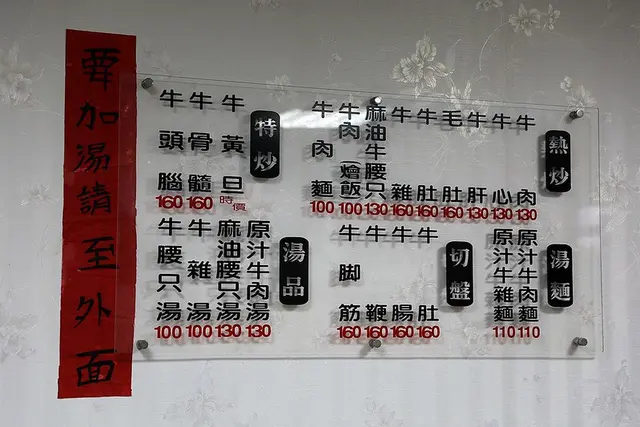 熱炒
牛肉 130
牛心 130
牛肝 130
毛肚 160
牛肚 160
牛雜 160
麻油牛腰只 130
牛肉(燴飯 100
牛肉麵 100
特炒
牛黃旦 時價
牛骨髓 160
牛頭腦 160
湯麵
原汁牛肉麵 110
原汁牛雜麵 110
切盤
牛肚 160
牛腸 160
牛鞭 160
牛脚筋 160
湯品
原汁牛肉湯 130
麻油腰只湯 130
牛雜湯 100
牛腰只湯 100
要加湯請至外面